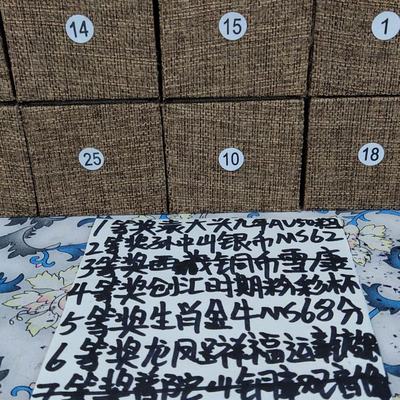 14 15 1
25 10 18
1等奖袁大头九年AU50粗
2等奖孙中山银币MS62
3等奖西藏铜币雪康
4等奖包汇时期粉彩杯
5等奖生肖金牛MS68分
6等奖龙凤呈祥福运
7等奖普陀山铜